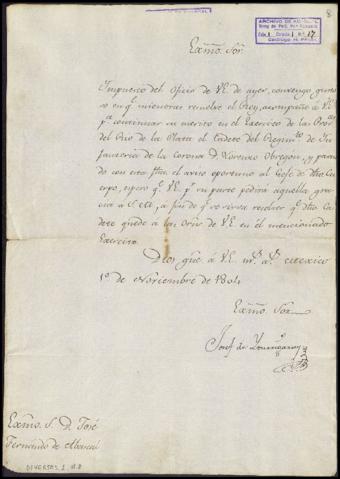 8
ARCHIVO DE
Exmo. Sor.
Impuesto del Oficio de VE. de ayer, convengo gusto-
so en q.e mientras resuelve el Rey, acompañe à VE
p.a continuar su merito en el Exercito de las Prov.as
del Rio de la Plata el Cadete del Regim.to de In-
fanteria de la Corona D. Lorenzo Obregon, y pasan-
do con esta fha. el aviso oportuno al Gefe de dho. Cu-
erpo, espero q.e VE. p.r su parte pedirà aquella gra-
cia à S.M. à fin de q.e se sirva resolver q.e dho. Ca-
dete quede à las Orns. de VE. en el mencionado
Exercito.
Dios gue. à VE. m.s a.s Mexico
1.o de Noviembre de 1804
Exmo. Sor.
Josef de Yturrigaray
Exmo. S. D. José
Fernando de Abascal
DIVERSOS 1